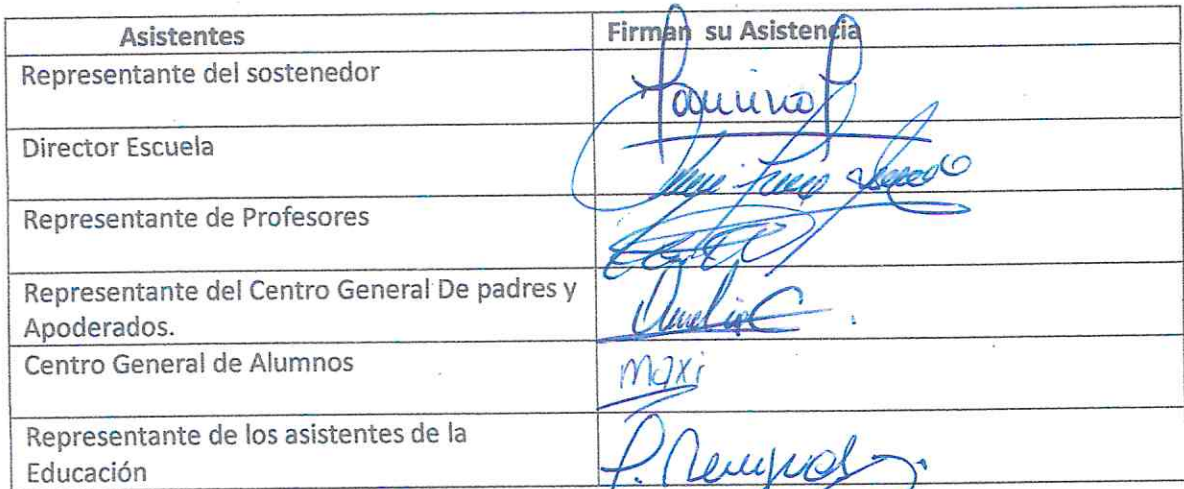 Asistentes Firman su Asistencia
Representante del sostenedor
Director Escuela
Representante de Profesores
Representante del Centro General De padres y
Apoderados.
Centro General de Alumnos maxi
Representante de los asistentes de la
Educación